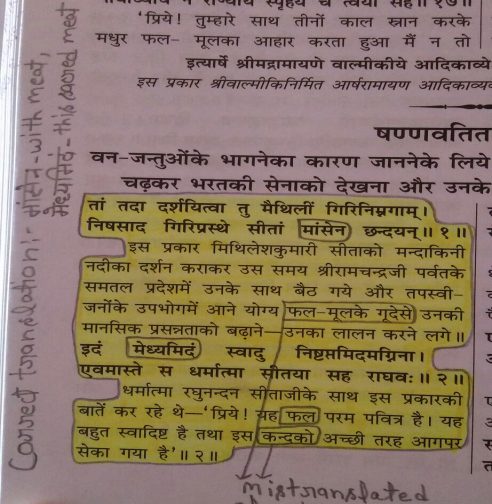 'प्रिये! तुम्हारे साथ तीनों काल स्नान करके
मधुर फल- मूलका आहार करता हुआ मैं न तो
इत्यार्षे श्रीमद्रामायणे वाल्मीकीये आदिकाव्ये
इस प्रकार श्रीवाल्मीकिनिर्मित आर्षरामायण आदिकाव्य
षण्णवतित
वन-जन्तुओंके भागनेका कारण जाननेके लिये
चढ़कर भरतकी सेनाको देखना और उनके
तां तदा दर्शयित्वा तु मैथिलीं गिरिनिम्नगाम्।
निषसाद गिरिप्रस्थे सीतां मांसेन छन्दयन्॥ १॥
इस प्रकार मिथिलेशकुमारी सीताको मन्दाकिनी
नदीका दर्शन कराकर उस समय श्रीरामचन्द्रजी पर्वतके
समतल प्रदेशमें उनके साथ बैठ गये और तपस्वी-
जनोंके उपभोगमें आने योग्य फल-मूलके गूदेसे उनकी
मानसिक प्रसन्नताको बढ़ाने—उनका लालन करने लगे॥
इदं मेध्यमिदं स्वादु निष्टप्तमिदमग्निना।
एवमास्ते स धर्मात्मा सीतया सह राघवः॥ २॥
धर्मात्मा रघुनन्दन सीताजीके साथ इस प्रकारकी
बातें कर रहे थे—'प्रिये! यह फल परम पवित्र है। यह
बहुत स्वादिष्ट है तथा इस कन्दको अच्छी तरह आगपर
सेका गया है'॥ २॥
Mistranslated
Correct translation:- मांसेन-with meat,
मेध्यमिदं-this sacred meat